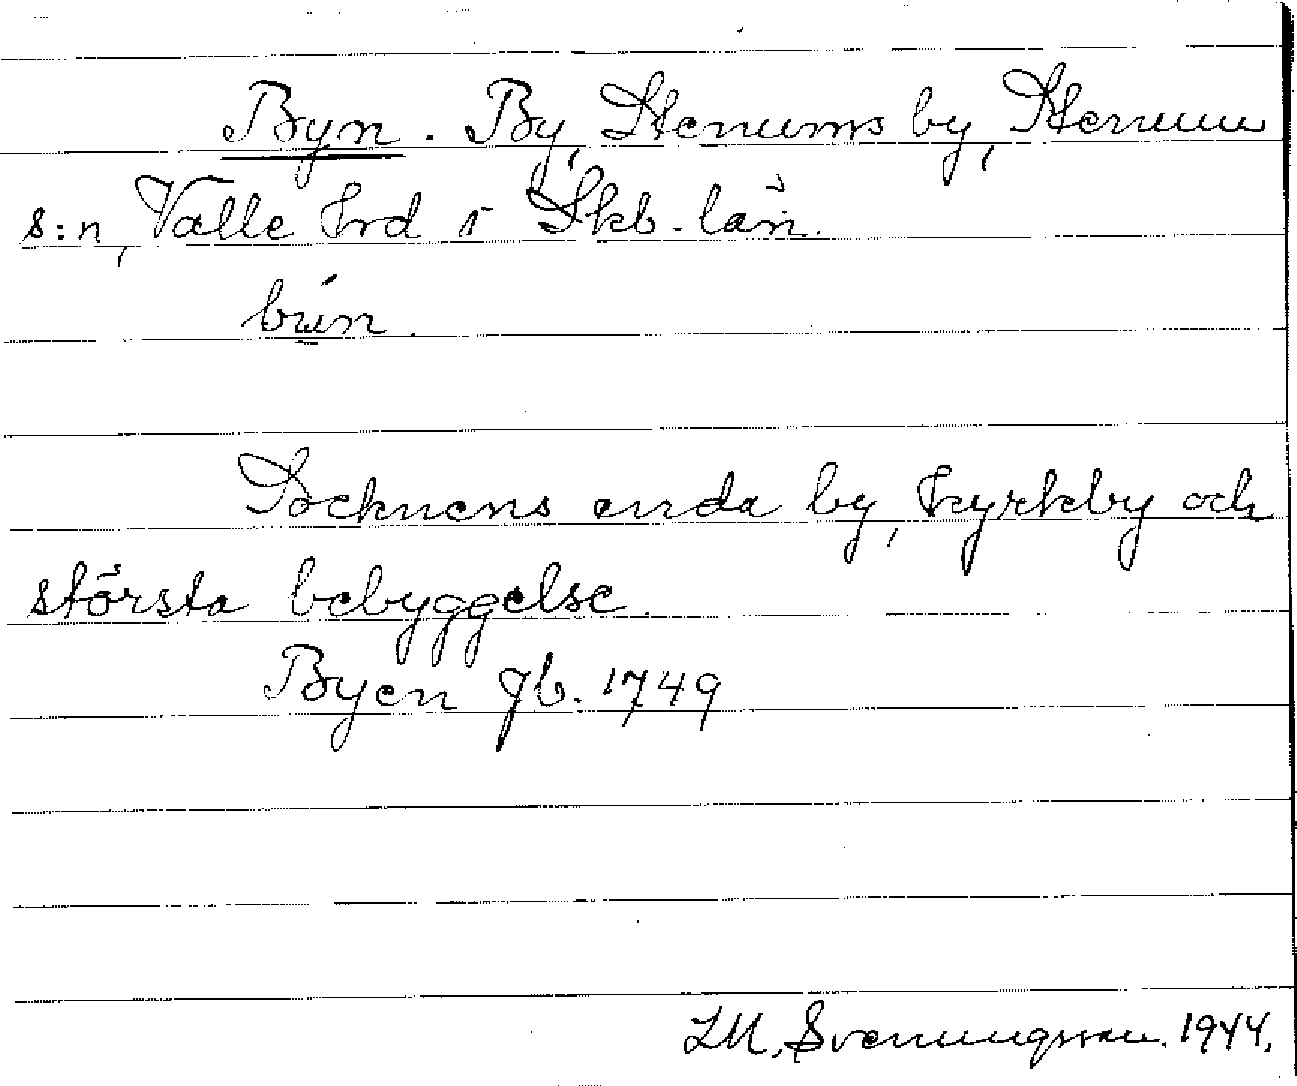 Byn. By, Stenums by, Stenum
s:n, Valle hrd i Skb. län.
Socknens enda by, kyrkby och
största bebyggelse.
Byen jb. 1749
Svenungsson. 1944.